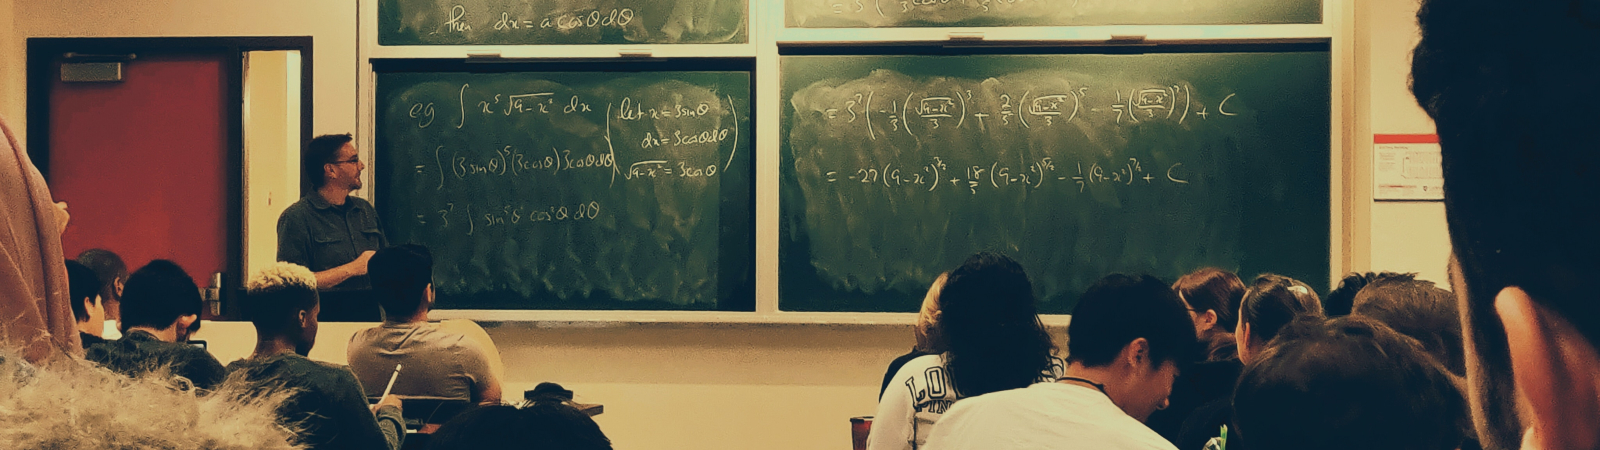 then dx = a cosθ dθ
eg ∫ x⁵ √(9-x²) dx (let x = 3sinθ
dx = 3cosθ dθ
= ∫ (3 sinθ)⁵ (3cosθ) 3cosθ dθ √(9-x²) = 3cosθ)
= 3⁷ ∫ sin⁵θ cos²θ dθ
= 3⁷ ( -1/3 (√(9-x²)/3)³ + 2/5 (√(9-x²)/3)⁵ - 1/7 (√(9-x²)/3)⁷ ) + C
= -27 (9-x²)^(3/2) + 18/5 (9-x²)^(5/2) - 1/7 (9-x²)^(7/2) + C